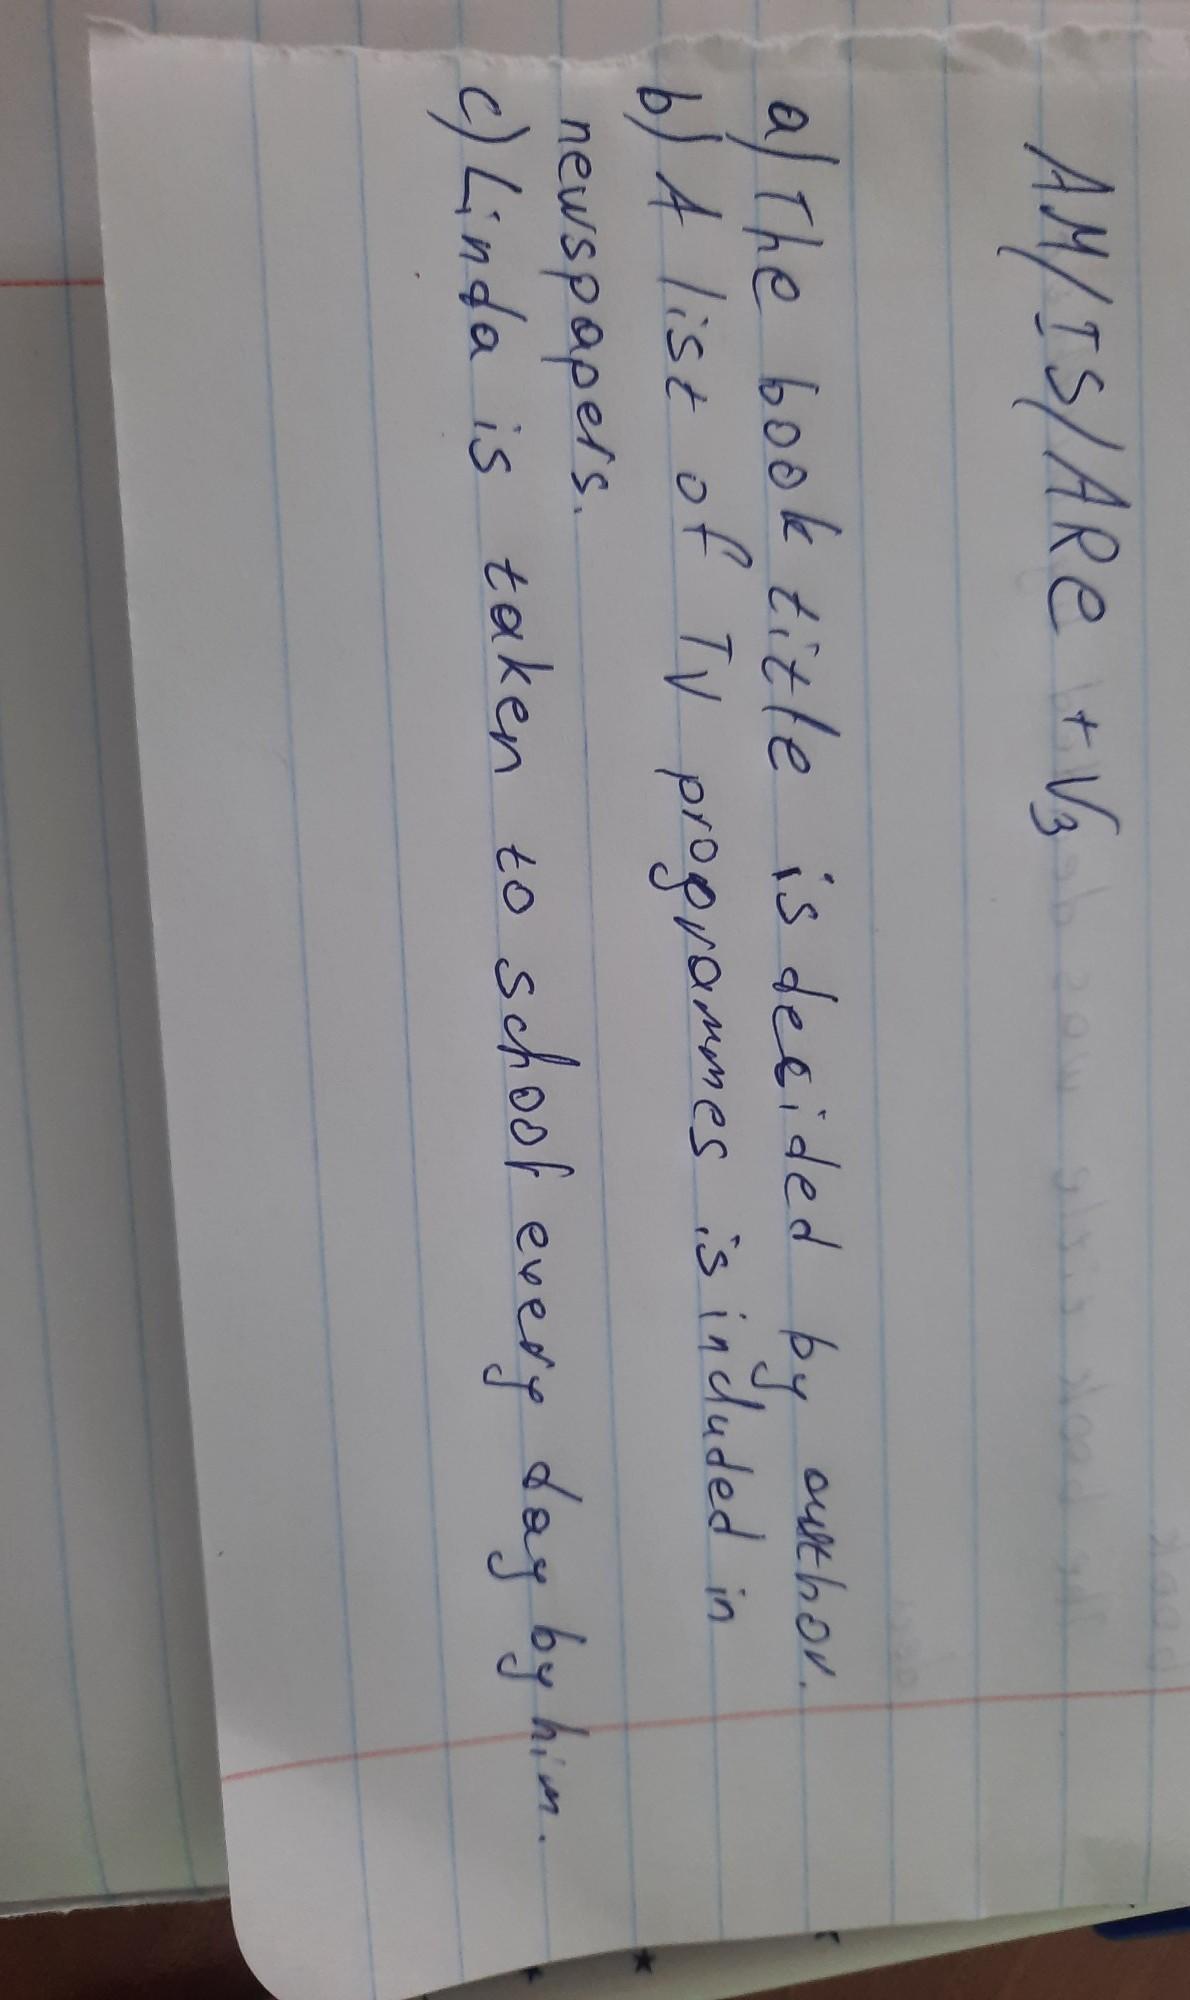 AM/IS/ARe + V3
a) The book title is decided by author.
b) A list of TV programmes is included in
newspapers.
c) Linda is taken to school every day by him.